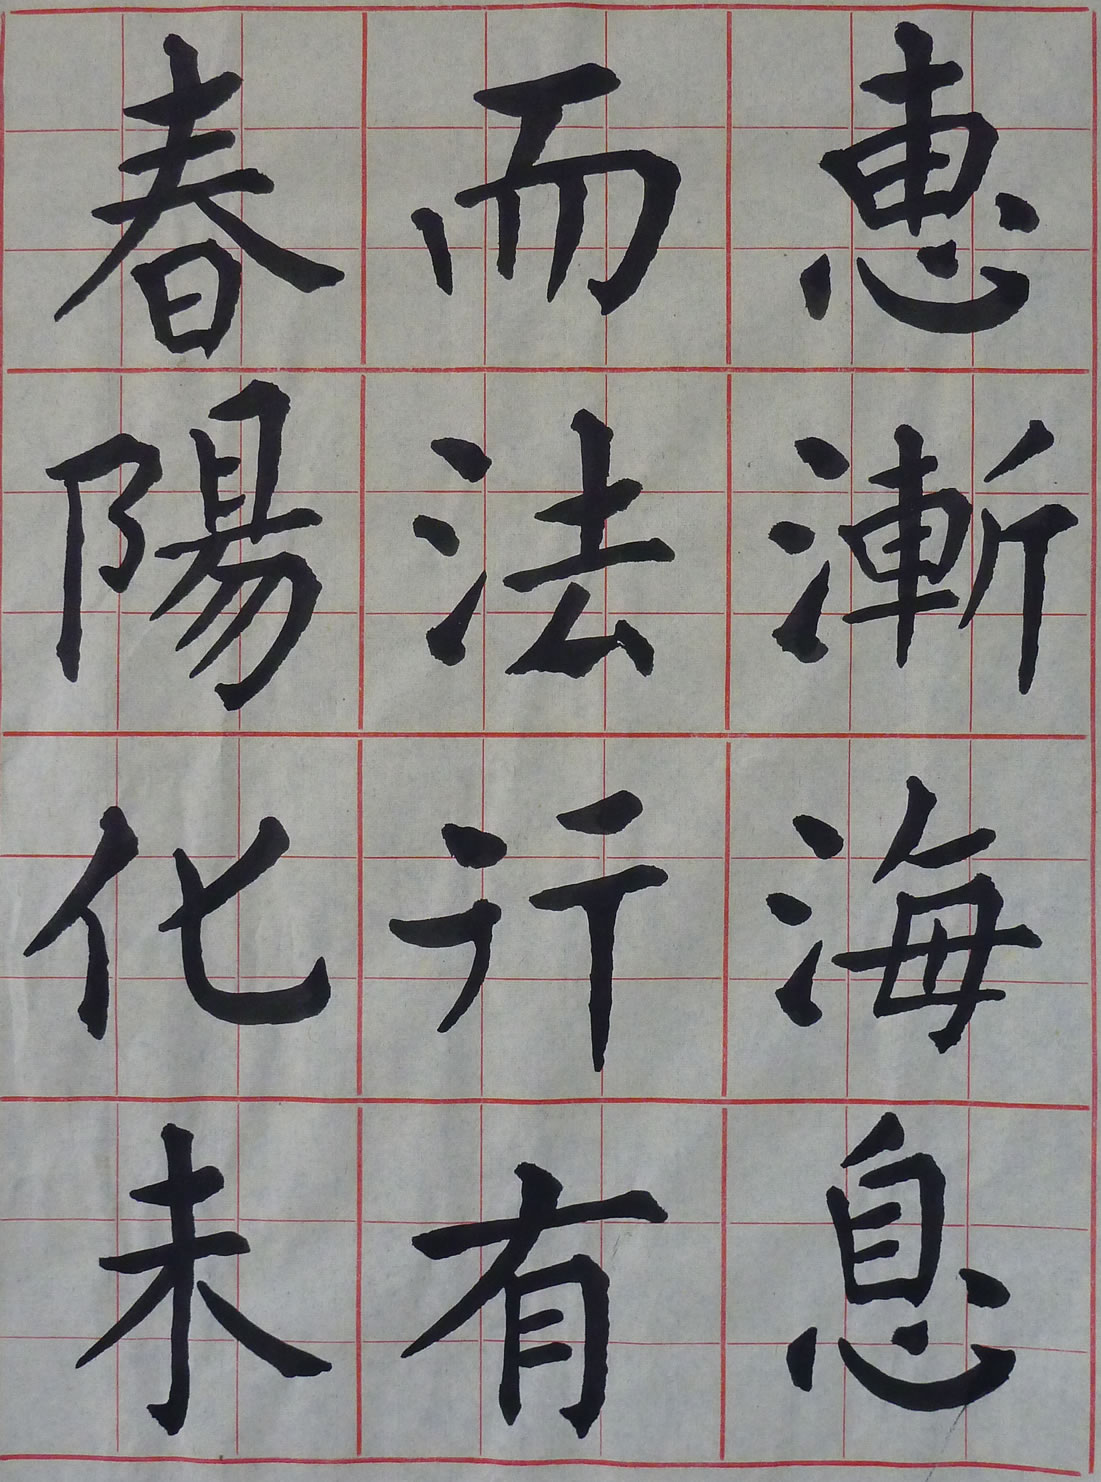 恵漸海息
而法行有
春陽化未